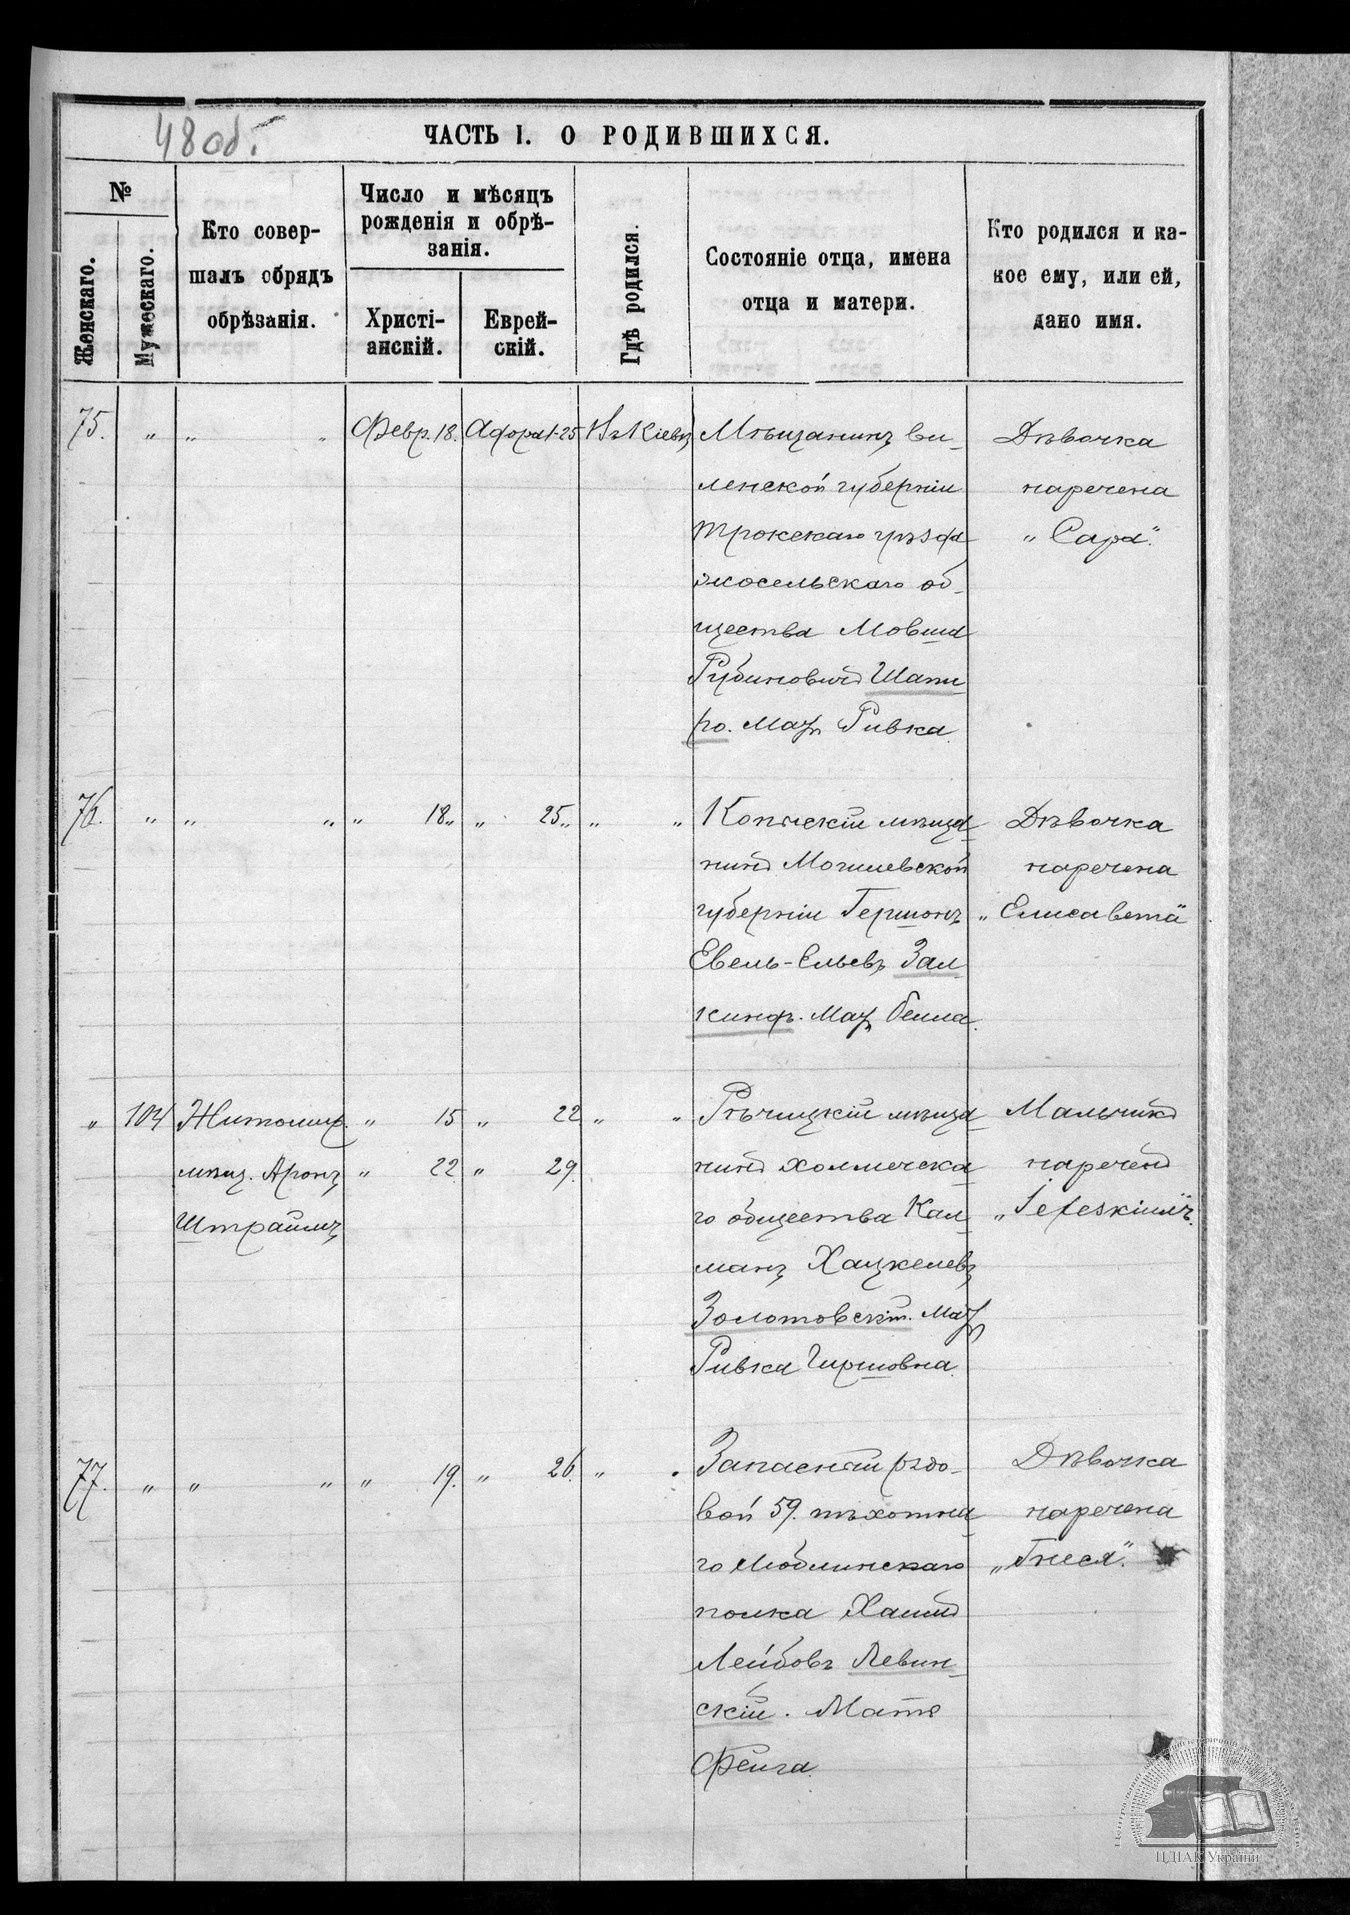 48 об.
ЧАСТЬ I. О РОДИВШИХСЯ.
№
Женскаго.
Мужескаго.
Кто совер-
шалъ обрядъ
обрѣзанія.
Число и мѣсяцъ
рожденія и обрѣ-
занія.
Христі-
анскій.
Еврей-
скій.
Гдѣ родился.
Состояніе отца, имена
отца и матери.
Кто родился и ка-
кое ему, или ей,
дано имя.
75. " " " Февр. 18. Адора 1-25 Въ Кіевѣ
Мѣщанинъ ви-
ленской губерніи
Трокскаго уѣзда
жосельскаго об-
щества Мовша
Рубиновичъ Шапи-
ро. Мать Ривка.
Дѣвочка
наречена
„Сара".
76. " " " " 18 " " 25 " " "
Копысскій мѣща-
нинъ Могилевской
губерніи Гершонъ
Евель-Ельевъ Зал-
киндъ. Мать Бейла.
Дѣвочка
наречена
„Елисавета"
" 104 Житомир.
мѣщ. Аронъ
Штраймъ
" 15 " 22 " "
" 22 " 29.
Рѣчицкій мѣща-
нинъ холмечска-
го общества Кал-
манъ Хацкелевъ
Золотовскій. Мать
Ривка Гиршовна.
Мальчикъ
нареченъ
77. " " " " 19. " 26. " "
Запасный рядо-
вой 59. пѣхотна-
го Люблинскаго
полка Хаимъ
Лейбовъ Левин-
скій. Мать
Фейга.
Дѣвочка
наречена
„Гнеся".
ЦДІАК України